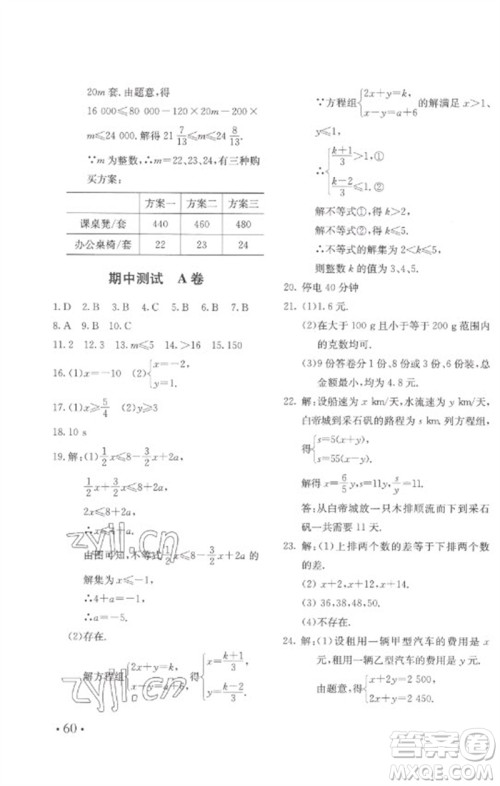 20m 套. 由题意,得
16 000≤80 000-120×20m-200×
m≤24 000. 解得 21 7/13≤m≤24 8/13.
∵m 为整数,∴m=22,23,24,有三种购
买方案:
方案一 方案二 方案三
课桌凳/套 440 460 480
办公桌椅/套 22 23 24
期中测试 A 卷
1. D 2. B 3. B 4. D 5. C 6. B 7. D
8. A 9. B 10. C
11. 2 12. 3 13. 14. 16 15. 150
16. (1)x=-10 (2){x=-2, y=1.
17. (1)x≥5/4
18. 10 s
19. 解:(1)∵1/2x≤8-3/2x+2a,
1/2x+3/2x≤8+2a,
2x≤8+2a,
x≤4+a.
由图可知,不等式1/2x≤8-3/2x+2a 的
解集为 x≤-1,
∴4+a=-1,
∴a=-5.
(2)存在.
解方程组{2x+y=k, x-y=a+6,得{x=(k+1)/3, y=(k-2)/3.
· 60 ·
∵方程组{2x+y=k, x-y=a+6 的解满足 x>
∴{(k+1)/3>1,① (k-2)/3≤1.②
解不等式①,得 k>2.
解不等式②,得 k≤5.
∴不等式的解集为 2<k≤5,
则整数 k 的值为 3,4,5.
20. 停电 40 分钟
21. (1)1.6 元.
(2)在大于 100 g 且小于或等于 200 g
的克数均可.
(3)9 份答卷分 1 份,8 份或 3 份,6 份装,
总金额最小,均为 4.8 元.
22. 解:设船速为 x km/天,水流速为 y km/天,
白帝城到采石矶的路程为 s km. 列方程组,
得{s=5(x+y), s=55(x-y).
解得 x=6/5y, s=11y, s/y=11.
答:从白帝城放一只木排顺流而下到采石
矶一共需要 11 天.
23. 解:(1)上排两个数的差等于下排两个数
的差.
(2)x+2,x+12,x+14.
(3)36,38,48,50.
(4)不存在.
24. 解:(1)设租用一辆甲型汽车的费用是 x 元,
租用一辆乙型汽车的费用是 y 元.
由题意,得{x+2y=2 500, 2x+y=2 450.
zyjl.cn
zyjl.cn
答案圈
MXQE.COM